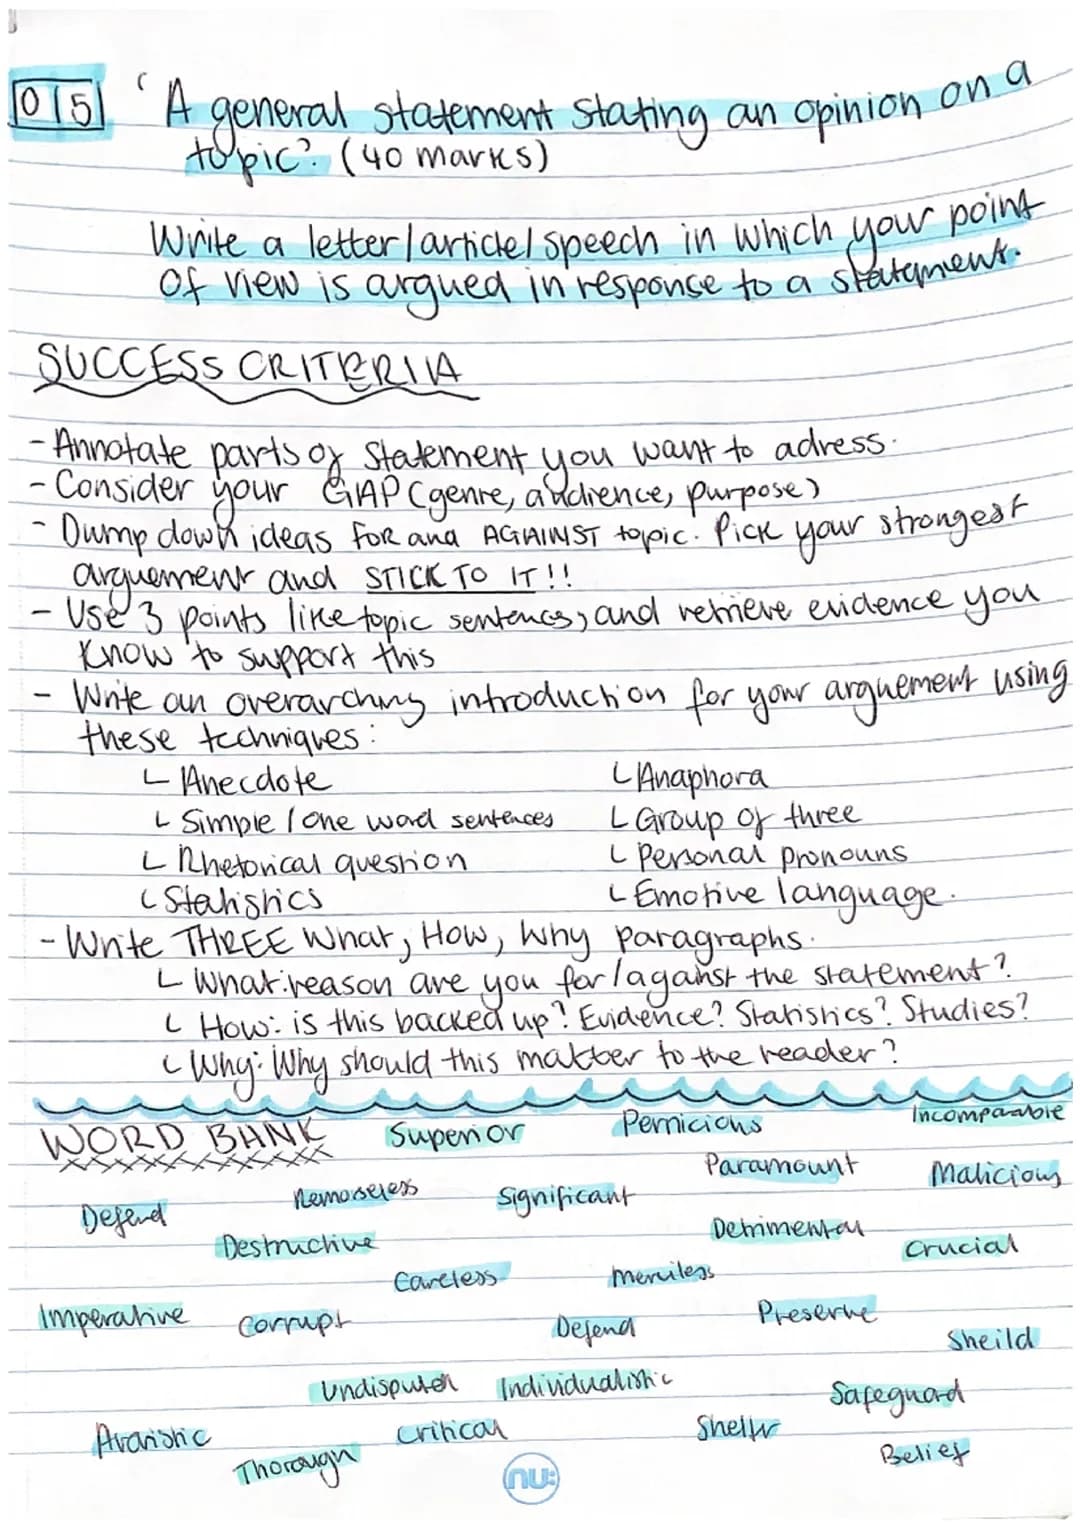 0 5 'A general statement stating an opinion on a
topic'. (40 marks)
Write a letter/article/speech in which your point
of view is argued in response to a statement.
SUCCESS CRITERIA
- Annotate parts of statement you want to adress.
- Consider your GAP (genre, audience, purpose)
- Dump down ideas FOR and AGAINST topic. Pick your strongest
arguement and STICK TO IT!!
- Use 3 points like topic sentences, and retrieve evidence you
know to support this
- Write an overarching introduction for your arguement using
these techniques:
└ Anecdote └ Anaphora
└ Simple/one word sentences └ Group of three
└ Rhetorical question └ Personal pronouns
└ Statistics └ Emotive language.
- Write THREE What, How, Why paragraphs.
└ What: reason are you for/against the statement?
└ How: is this backed up? Evidence? Statistics? Studies?
└ Why: Why should this matter to the reader?
WORD BANK Superior Pernicious Incomparable
Paramount Malicious
Defend Remorseless Significant
Destructive Detrimental Crucial
Careless Merciless
Imperative Corrupt Defend Preserve
Sheild
Undisputed Individualistic Safeguard
Avaristic Critical Shelter
Thorough Belief
nu: